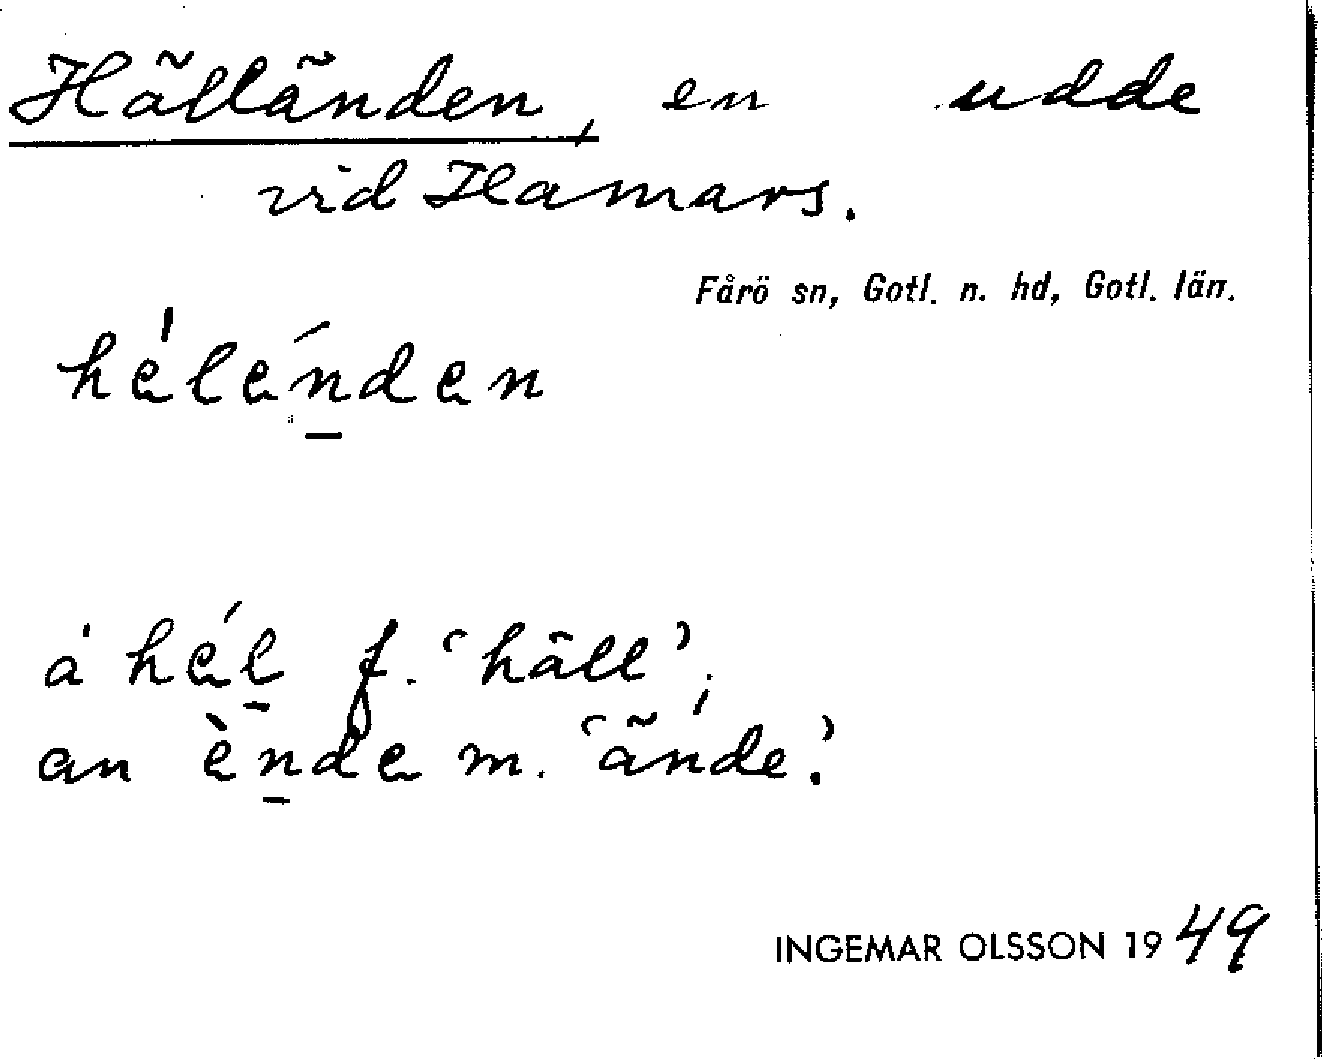 Hälländen, en udde
vid Hamars.
Fårö sn, Gotl. n. hd, Gotl. län.
hélénden
å hél f. 'häll';
an ènde m. 'ände'.
INGEMAR OLSSON 1949